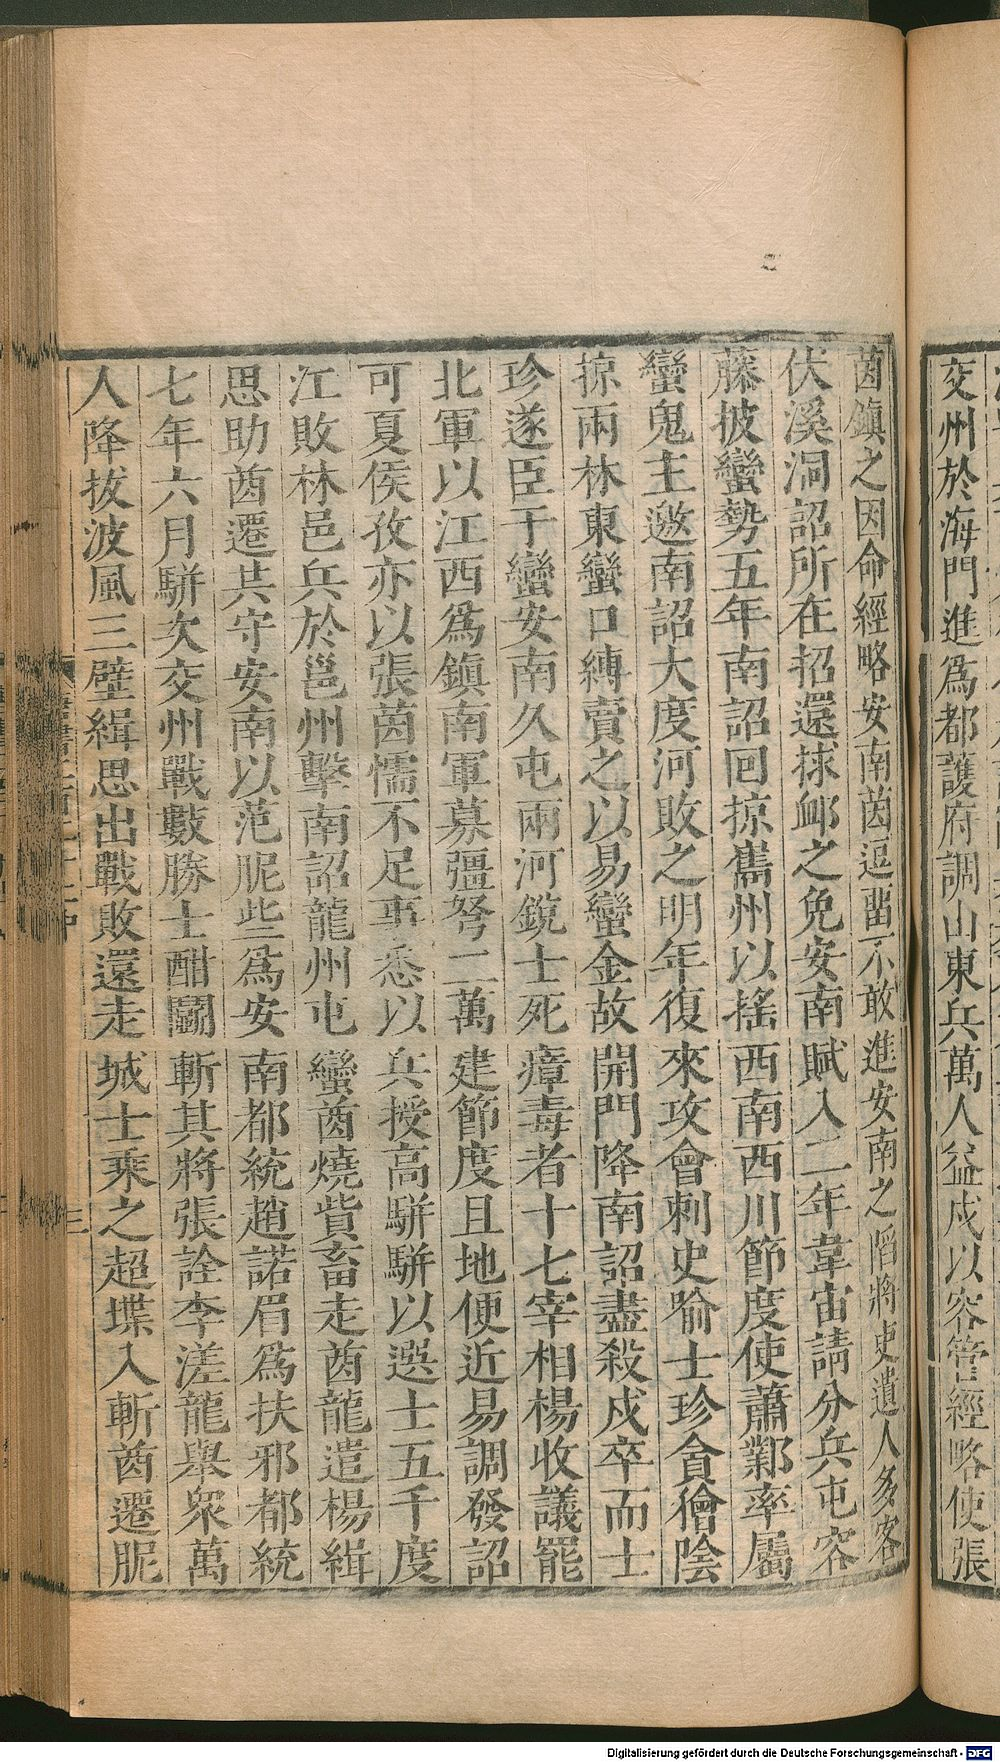 交州於海門進爲都護府調山東兵萬人益戍以容管經略使張
茵鎮之因命經略安南茵逗留不敢進安南之陷將吏遺人多客
伏溪洞詔所在招還捄卹之免安南賦入二年韋宙請分兵屯容
藤披蠻勢五年南詔回掠巂州以搖西南西川節度使蕭鄴率屬
蠻鬼主邀南詔大度河敗之明年復來攻會刺史喻士珍貪獪陰
掠兩林東蠻口縛賣之以易蠻金故開門降南詔盡殺戍卒而士
珍遂臣于蠻安南久屯兩河銳士死瘴毒者十七宰相楊收議罷
北軍以江西爲鎮南軍募彊弩二萬建節度且地便近易調發詔
可夏侯孜亦以張茵懦不足事悉以兵授高駢駢以選士五千度
江敗林邑兵於邕州擊南詔龍州屯蠻酋燒貲畜走酋龍遣楊緝
思助酋遷共守安南以范昵些爲安南都統趙諾眉爲扶邪都統
七年六月駢次交州戰數勝士酣鬬斬其將張詮李溠龍舉衆萬
人降拔波風三壁緝思出戰敗還走城士乘之超堞入斬酋遷昵
三
Digitalisierung gefördert durch die Deutsche Forschungsgemeinschaft - DFG